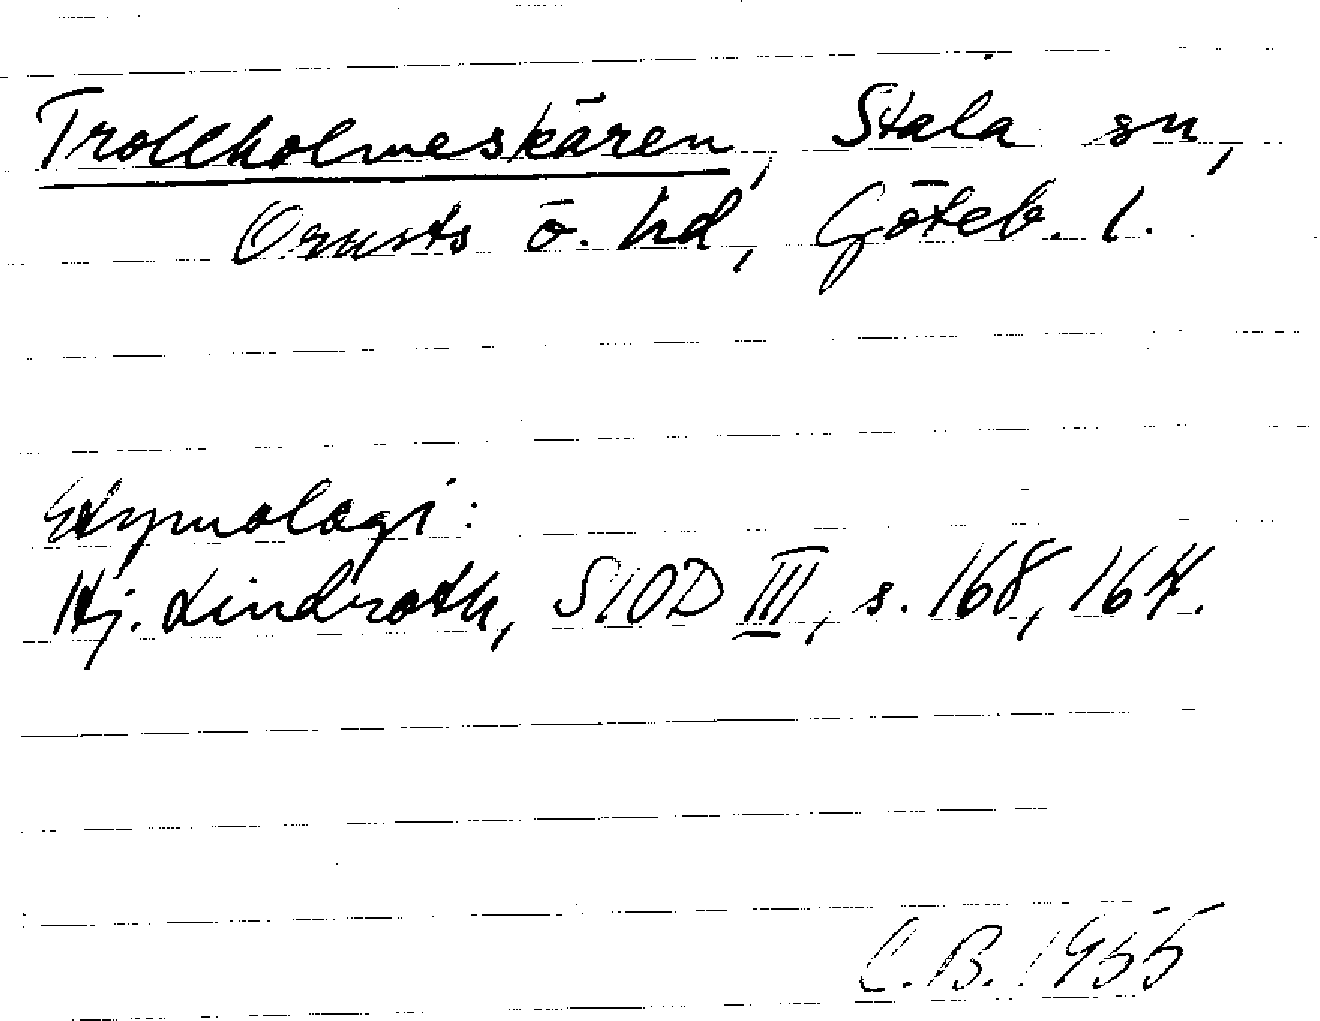 Trollholmeskären, Stala sn,
Orusts ö. hd, Göteb. l.
Etymologi:
Hj. Lindroth, SIOD III, s. 168, 164.
C.B. 1955